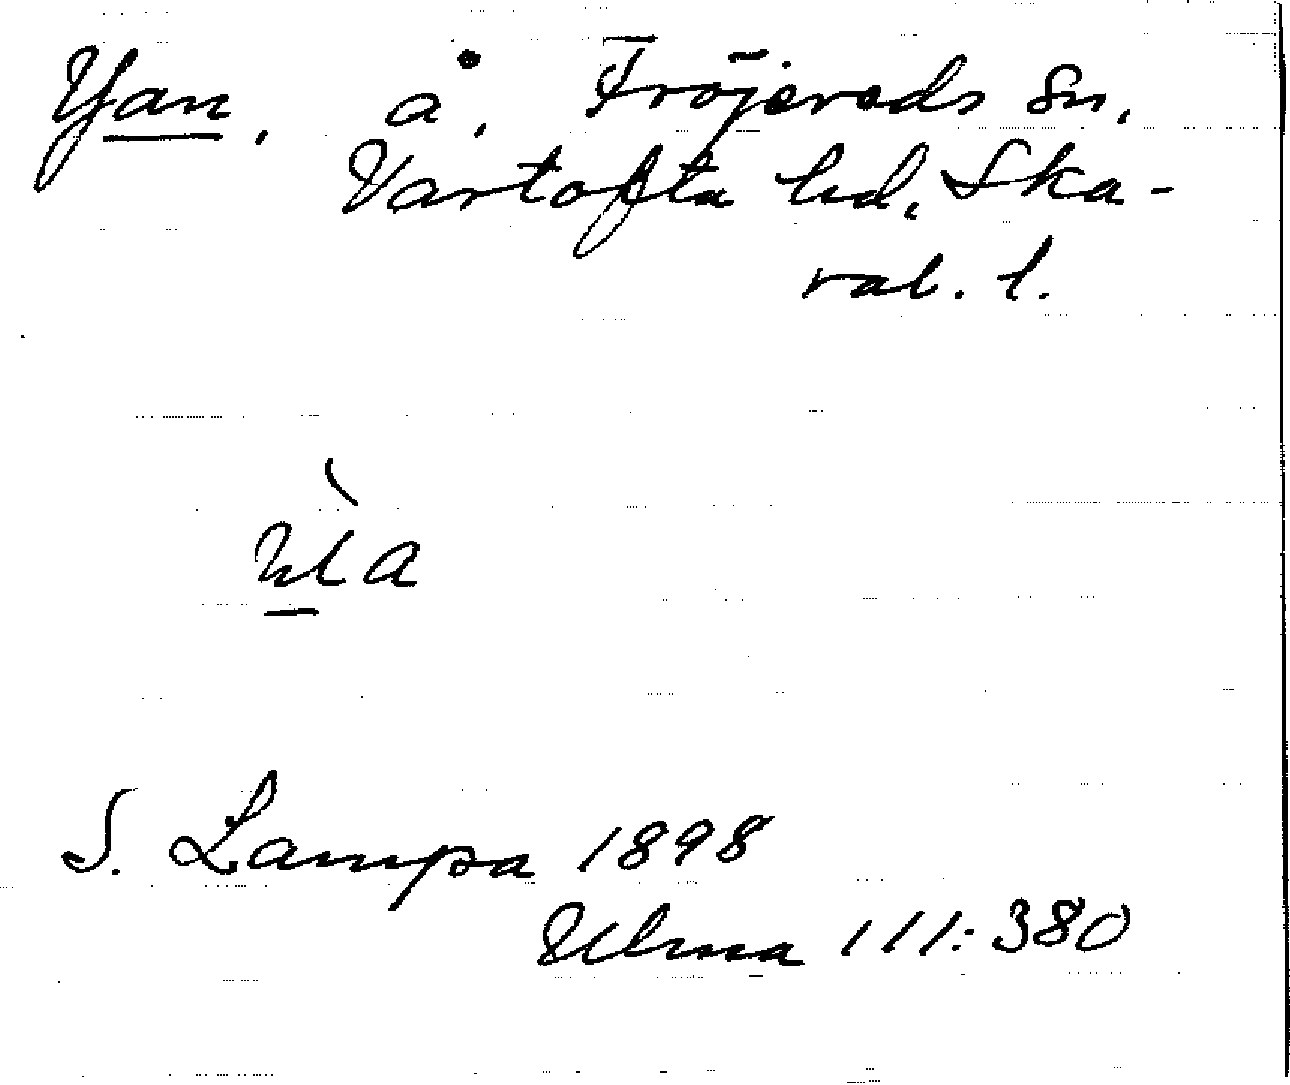 Yan, å, Fröjereds sn,
Vartofta hd, Ska-
rab. l.
S. Lampa 1898
Ulma 111:380